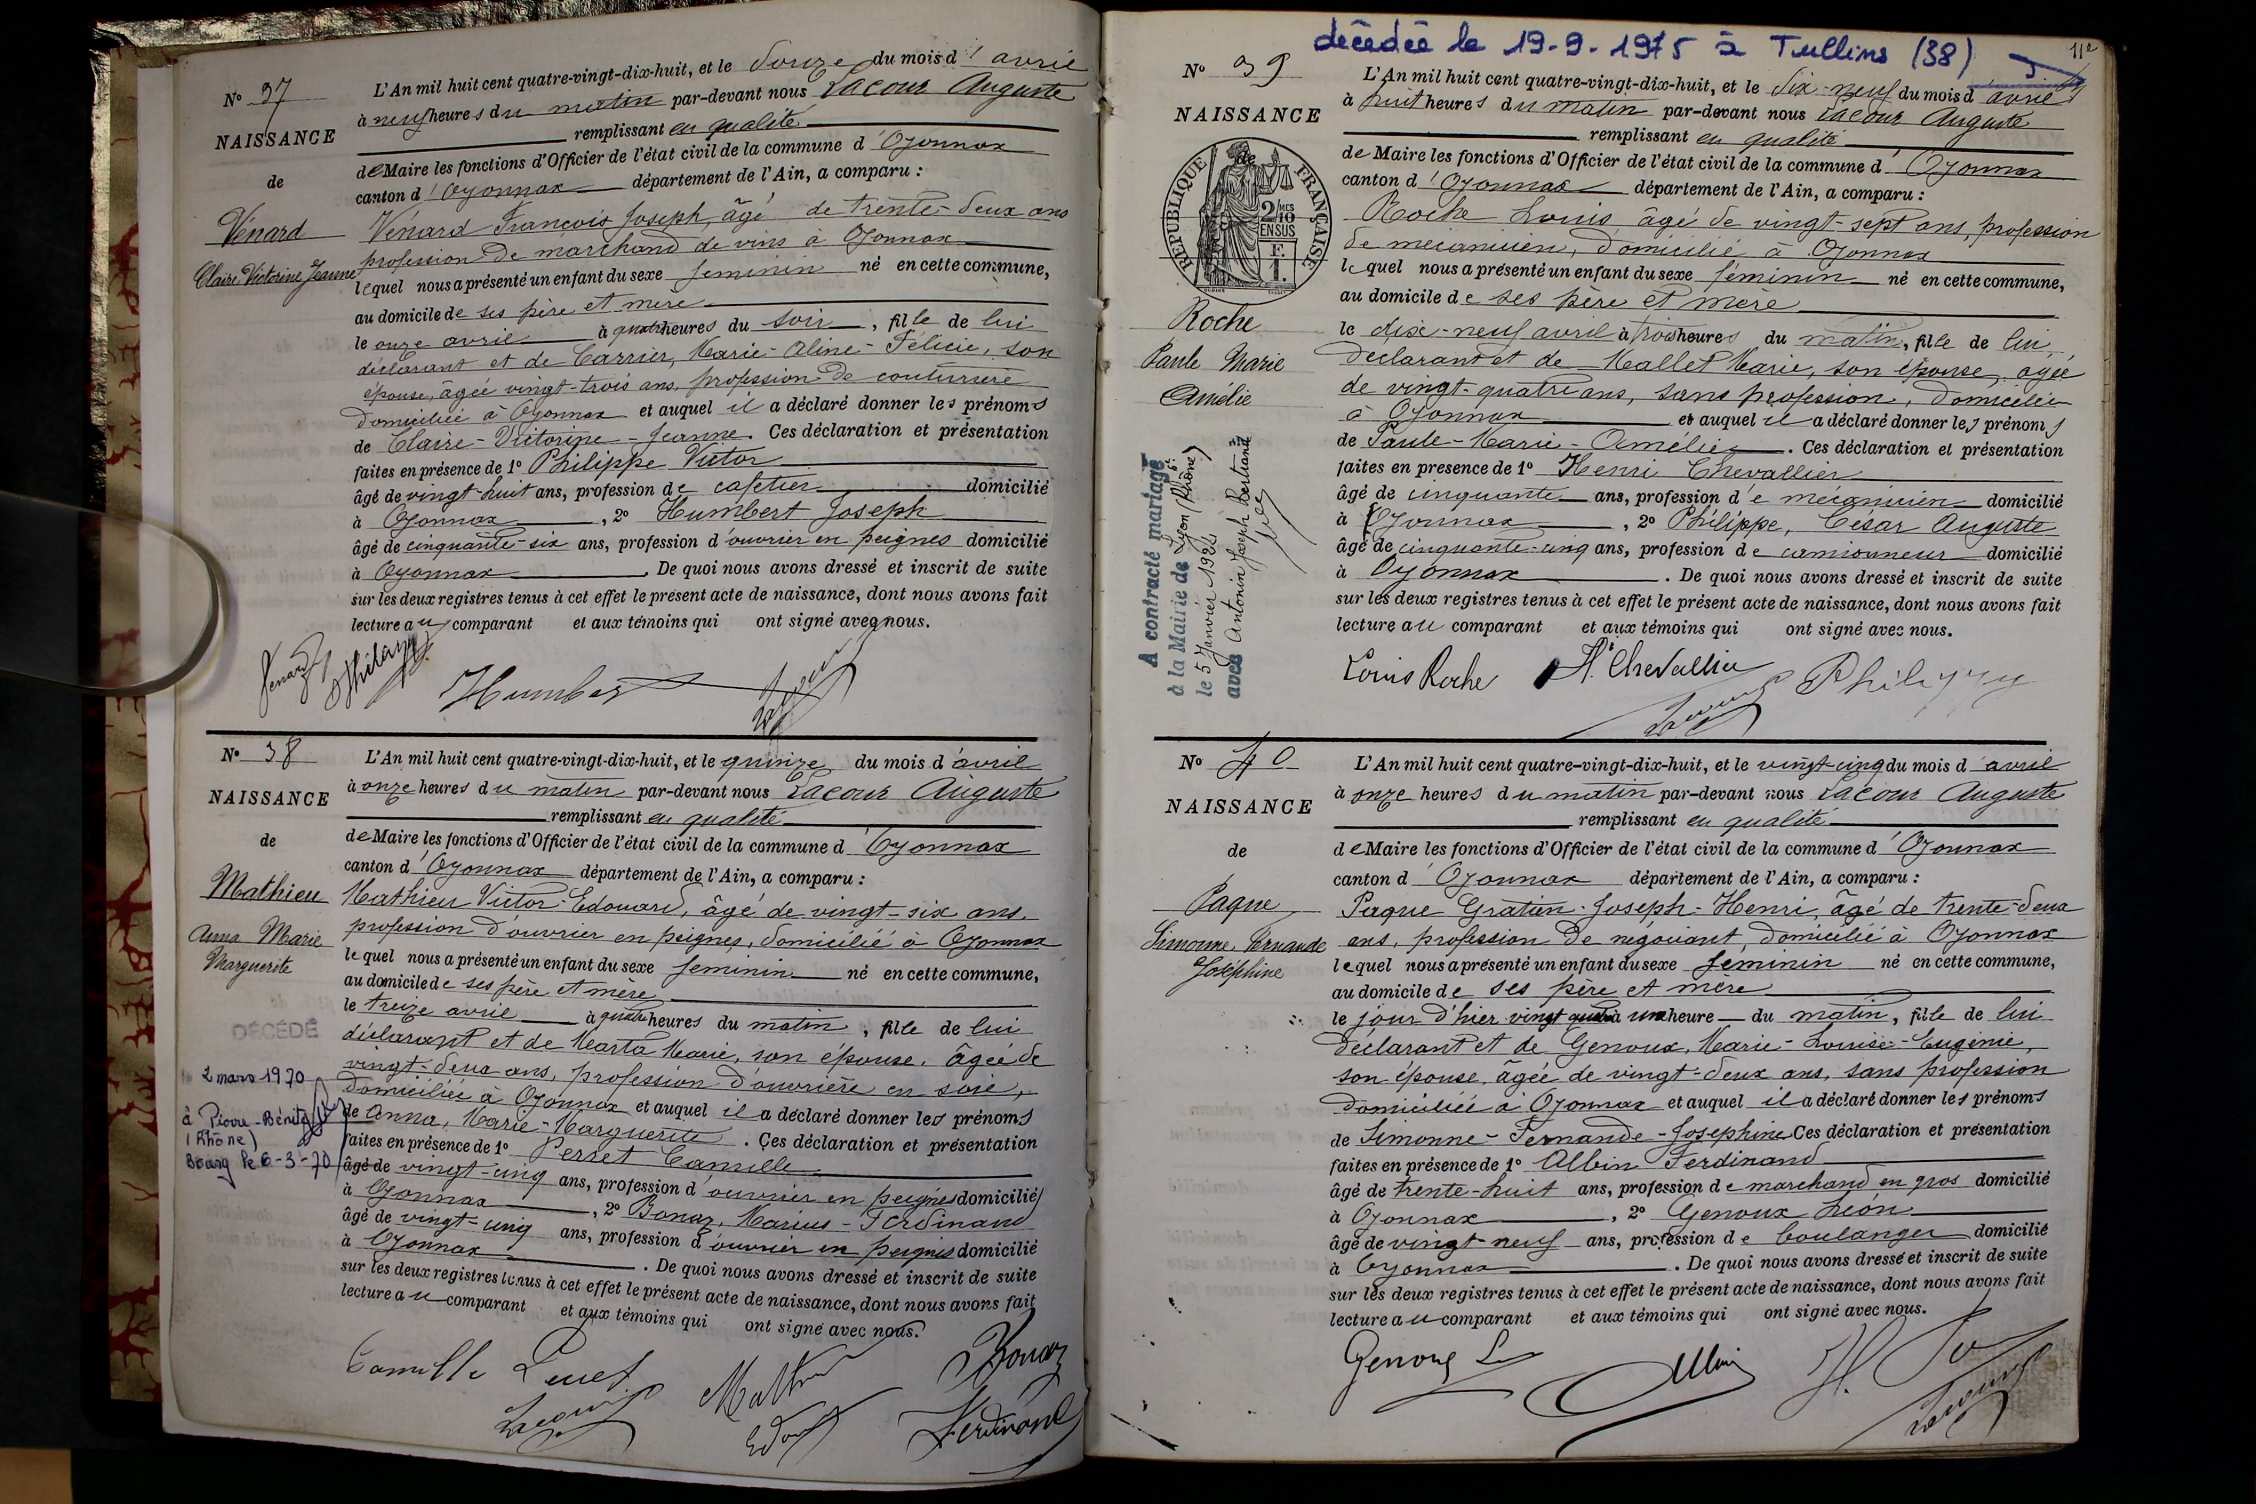 N° 37
NAISSANCE
de
Vénard
Claire Victorine Jeanne
L'An mil huit cent quatre-vingt-dix-huit, et le douze du mois d'avril
à neuf heures du matin par-devant nous Lacour Auguste
remplissant en qualité
de Maire les fonctions d'Officier de l'état civil de la commune d'Oyonnax
canton d'Oyonnax département de l'Ain, a comparu :
Vénard François Joseph, âgé de trente-deux ans
profession de marchand de vins à Oyonnax
lequel nous a présenté un enfant du sexe feminin né en cette commune,
au domicile de ses père et mère
le onze avril à quatre heures du soir, fille de lui
déclarant et de Carrier, Marie-Aline-Félicie, son
épouse, âgée vingt-trois ans, profession de couturière
domiciliée à Oyonnax et auquel il a déclaré donner les prénoms
de Claire-Victorine-Jeanne. Ces déclaration et présentation
faites en présence de 1° Philippe Victor
âgé de vingt-huit ans, profession de cafetier domicilié
à Oyonnax, 2° Humbert Joseph
âgé de cinquante-six ans, profession d'ouvrier en peignes domicilié
à Oyonnax. De quoi nous avons dressé et inscrit de suite
sur les deux registres tenus à cet effet le présent acte de naissance, dont nous avons fait
lecture au comparant et aux témoins qui ont signé avec nous.
Humbert
N° 38
NAISSANCE
de
Mathieu
Anna Marie
Marguerite
DÉCÉDÉ
le 2 mars 1970
à Pierre-Bénite
(Rhône)
Bourg le 6-3-70
L'An mil huit cent quatre-vingt-dix-huit, et le quinze du mois d'avril
à onze heures du matin par-devant nous Lacour Auguste
remplissant en qualité
de Maire les fonctions d'Officier de l'état civil de la commune d'Oyonnax
canton d'Oyonnax département de l'Ain, a comparu :
Mathieu Victor-Edouard, âgé de vingt-six ans,
profession d'ouvrier en peignes, domicilié à Oyonnax
lequel nous a présenté un enfant du sexe feminin né en cette commune,
au domicile de ses père et mère
le treize avril à quatre heures du matin, fille de lui
déclarant et de Marta Marie, son épouse, âgée de
vingt-deux ans, profession d'ouvrière en soie,
domiciliée à Oyonnax et auquel il a déclaré donner les prénoms
de Anna, Marie-Marguerite. Ces déclaration et présentation
faites en présence de 1° Perret Camille
âgé de vingt-cinq ans, profession d'ouvrier en peignes domicilié
à Oyonnax, 2° Bonaz, Marius-Ferdinand
âgé de vingt-cinq ans, profession d'ouvrier en peignes domicilié
à Oyonnax. De quoi nous avons dressé et inscrit de suite
sur les deux registres tenus à cet effet le présent acte de naissance, dont nous avons fait
lecture au comparant et aux témoins qui ont signé avec nous.
Camille Perret
Bonaz
Ferdinand
décédée le 19-9-1975 à Tullins (38)
N° 39
NAISSANCE
de
RÉPUBLIQUE FRANÇAISE
2/10 MES
EN SUS
F.
1.
Roche
Paule Marie
Amélie
A contracté mariage
à la Mairie de Lyon 6e (Rhône)
le 5 Janvier 1924
avec Antonin Joseph Bertrand
L'An mil huit cent quatre-vingt-dix-huit, et le dix-neuf du mois d'avril
à huit heures du matin par-devant nous Lacour Auguste
remplissant en qualité
de Maire les fonctions d'Officier de l'état civil de la commune d'Oyonnax
canton d'Oyonnax département de l'Ain, a comparu :
Roche Louis, âgé de vingt-sept ans, profession
de mécanicien, domicilié à Oyonnax
lequel nous a présenté un enfant du sexe féminin né en cette commune,
au domicile de ses père et mère
le dix-neuf avril à trois heures du matin, fille de lui,
déclarant et de Mallet Marie, son épouse, âgée
de vingt-quatre ans, sans profession, domiciliée
à Oyonnax et auquel il a déclaré donner les prénoms
de Paule-Marie-Amélie. Ces déclaration et présentation
faites en présence de 1° Henri Chevallier
âgé de cinquante ans, profession de mécanicien domicilié
à Oyonnax, 2° Philippe, César Auguste
âgé de cinquante-cinq ans, profession de camionneur domicilié
à Oyonnax. De quoi nous avons dressé et inscrit de suite
sur les deux registres tenus à cet effet le présent acte de naissance, dont nous avons fait
lecture au comparant et aux témoins qui ont signé avec nous.
Louis Roche H. Chevallier
N° 40
NAISSANCE
de
Paque
Simonne Fernande
Joséphine
L'An mil huit cent quatre-vingt-dix-huit, et le vingt-cinq du mois d'avril
à onze heures du matin par-devant nous Lacour Auguste
remplissant en qualité
de Maire les fonctions d'Officier de l'état civil de la commune d'Oyonnax
canton d'Oyonnax département de l'Ain, a comparu :
Paque Gratien-Joseph-Henri, âgé de trente-deux
ans, profession de négociant, domicilié à Oyonnax
lequel nous a présenté un enfant du sexe feminin né en cette commune,
au domicile de ses père et mère
le jour d'hier vingt quatre à une heure du matin, fille de lui
déclarant et de Genoux, Marie-Louise-Eugénie,
son épouse, âgée de vingt-deux ans, sans profession
domiciliée à Oyonnax et auquel il a déclaré donner les prénoms
de Simonne-Fernande-Josephine. Ces déclaration et présentation
faites en présence de 1° Albin Ferdinand
âgé de trente-huit ans, profession de marchand en gros domicilié
à Oyonnax, 2° Genoux Léon
âgé de vingt-neuf ans, profession de boulanger domicilié
à Oyonnax. De quoi nous avons dressé et inscrit de suite
sur les deux registres tenus à cet effet le présent acte de naissance, dont nous avons fait
lecture au comparant et aux témoins qui ont signé avec nous.
Genoux